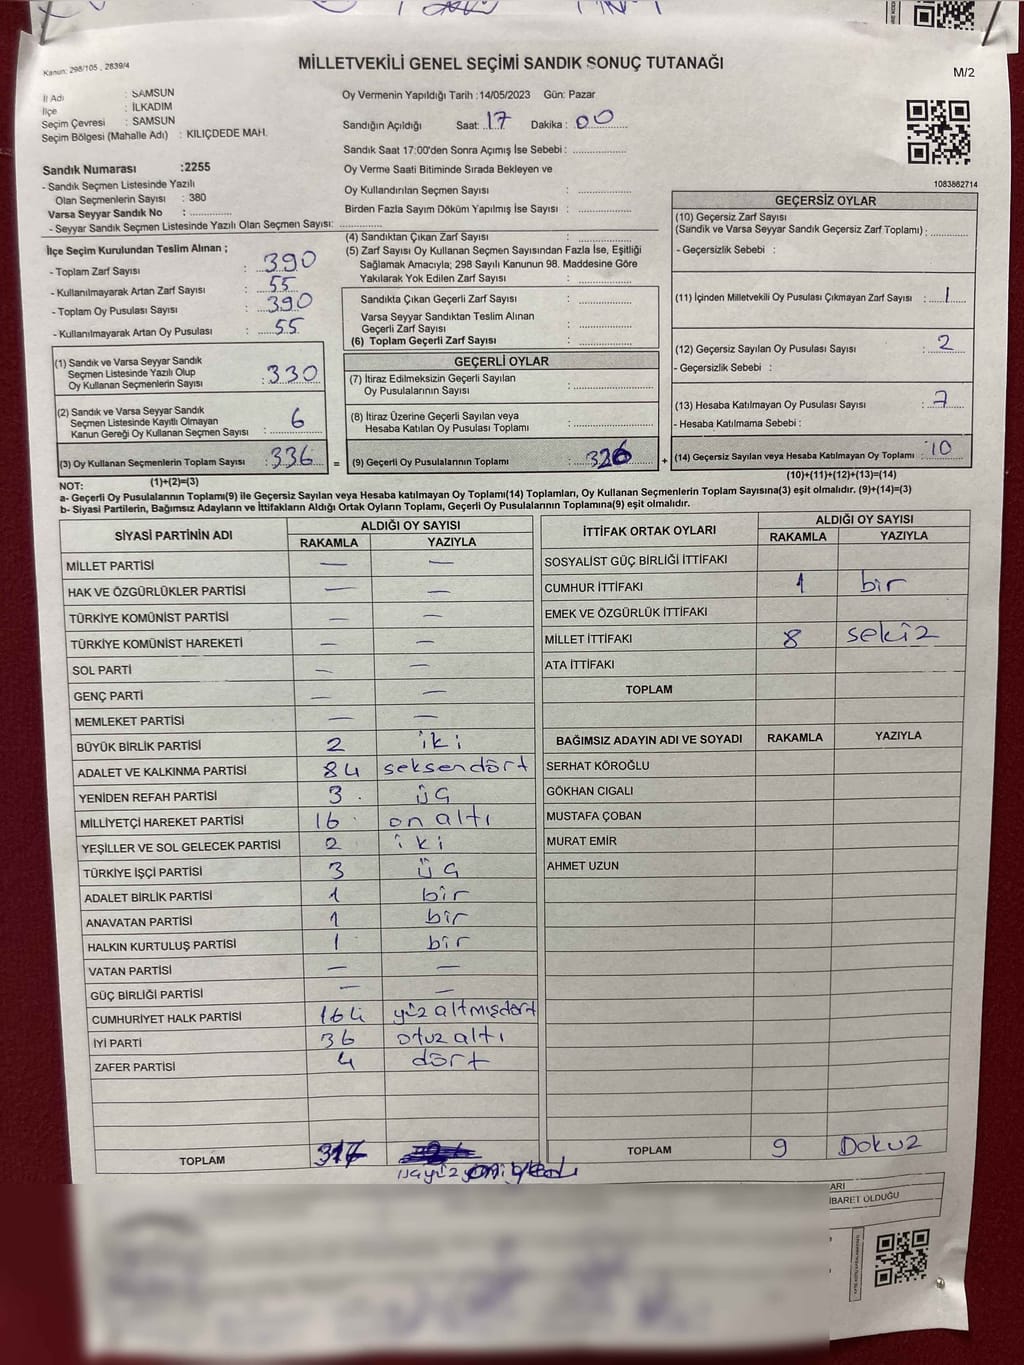 Kanun: 298/105 , 2839/4
MİLLETVEKİLİ GENEL SEÇİMİ SANDIK SONUÇ TUTANAĞI
M/2
İl Adı : SAMSUN
İlçe : İLKADIM
Seçim Çevresi : SAMSUN
Seçim Bölgesi (Mahalle Adı) : KILIÇDEDE MAH.
Oy Vermenin Yapıldığı Tarih :14/05/2023 Gün: Pazar
Sandığın Açıldığı Saat: 17 Dakika : 00
Sandık Saat 17:00'den Sonra Açımış İse Sebebi :
Oy Verme Saati Bitiminde Sırada Bekleyen ve
Oy Kullandırılan Seçmen Sayısı :
Birden Fazla Sayım Döküm Yapılmış İse Sayısı :
1083862714
Sandık Numarası :2255
- Sandık Seçmen Listesinde Yazılı
Olan Seçmenlerin Sayısı : 380
Varsa Seyyar Sandık No :
- Seyyar Sandık Seçmen Listesinde Yazılı Olan Seçmen Sayısı:
İlçe Seçim Kurulundan Teslim Alınan ;
- Toplam Zarf Sayısı : 390
- Kullanılmayarak Artan Zarf Sayısı : 55
- Toplam Oy Pusulası Sayısı : 390
- Kullanılmayarak Artan Oy Pusulası : 55
(1) Sandık ve Varsa Seyyar Sandık
Seçmen Listesinde Yazılı Olup
Oy Kullanan Seçmenlerin Sayısı : 330
(2) Sandık ve Varsa Seyyar Sandık
Seçmen Listesinde Kayıtlı Olmayan
Kanun Gereği Oy Kullanan Seçmen Sayısı : 6
(3) Oy Kullanan Seçmenlerin Toplam Sayısı : 336 =
(1)+(2)=(3)
(4) Sandıktan Çıkan Zarf Sayısı :
(5) Zarf Sayısı Oy Kullanan Seçmen Sayısından Fazla İse, Eşitliği
Sağlamak Amacıyla; 298 Sayılı Kanunun 98. Maddesine Göre
Yakılarak Yok Edilen Zarf Sayısı :
Sandıkta Çıkan Geçerli Zarf Sayısı :
Varsa Seyyar Sandıktan Teslim Alınan
Geçerli Zarf Sayısı :
(6) Toplam Geçerli Zarf Sayısı :
GEÇERLİ OYLAR
(7) İtiraz Edilmeksizin Geçerli Sayılan
Oy Pusulalarının Sayısı :
(8) İtiraz Üzerine Geçerli Sayılan veya
Hesaba Katılan Oy Pusulası Toplamı :
(9) Geçerli Oy Pusulalarının Toplamı : 326 +
GEÇERSİZ OYLAR
(10) Geçersiz Zarf Sayısı
(Sandık ve Varsa Seyyar Sandık Geçersiz Zarf Toplamı) :
- Geçersizlik Sebebi :
(11) İçinden Milletvekili Oy Pusulası Çıkmayan Zarf Sayısı : 1
(12) Geçersiz Sayılan Oy Pusulası Sayısı : 2
- Geçersizlik Sebebi :
(13) Hesaba Katılmayan Oy Pusulası Sayısı : 7
- Hesaba Katılmama Sebebi :
(14) Geçersiz Sayılan veya Hesaba Katılmayan Oy Toplamı : 10
(10)+(11)+(12)+(13)=(14)
NOT:
a- Geçerli Oy Pusulalarının Toplamı(9) ile Geçersiz Sayılan veya Hesaba katılmayan Oy Toplamı(14) Toplamları, Oy Kullanan Seçmenlerin Toplam Sayısına(3) eşit olmalıdır. (9)+(14)=(3)
b- Siyasi Partilerin, Bağımsız Adayların ve İttifakların Aldığı Ortak Oyların Toplamı, Geçerli Oy Pusulalarının Toplamına(9) eşit olmalıdır.
SİYASİ PARTİNİN ADI ALDIĞI OY SAYISI
RAKAMLA YAZIYLA
MİLLET PARTİSİ — —
HAK VE ÖZGÜRLÜKLER PARTİSİ — —
TÜRKİYE KOMÜNİST PARTİSİ — —
TÜRKİYE KOMÜNİST HAREKETİ — —
SOL PARTİ — —
GENÇ PARTİ — —
MEMLEKET PARTİSİ — —
BÜYÜK BİRLİK PARTİSİ 2 iki
ADALET VE KALKINMA PARTİSİ 84 seksendört
YENİDEN REFAH PARTİSİ 3 üç
MİLLİYETÇİ HAREKET PARTİSİ 16 on altı
YEŞİLLER VE SOL GELECEK PARTİSİ 2 iki
TÜRKİYE İŞÇİ PARTİSİ 3 üç
ADALET BİRLİK PARTİSİ 1 bir
ANAVATAN PARTİSİ 1 bir
HALKIN KURTULUŞ PARTİSİ 1 bir
VATAN PARTİSİ — —
GÜÇ BİRLİĞİ PARTİSİ — —
CUMHURİYET HALK PARTİSİ 164 yüz altmışdört
İYİ PARTİ 36 otuz altı
ZAFER PARTİSİ 4 dört
TOPLAM 317
İTTİFAK ORTAK OYLARI ALDIĞI OY SAYISI
RAKAMLA YAZIYLA
SOSYALİST GÜÇ BİRLİĞİ İTTİFAKI
CUMHUR İTTİFAKI 1 bir
EMEK VE ÖZGÜRLÜK İTTİFAKI
MİLLET İTTİFAKI 8 sekiz
ATA İTTİFAKI
TOPLAM
BAĞIMSIZ ADAYIN ADI VE SOYADI RAKAMLA YAZIYLA
SERHAT KÖROĞLU
GÖKHAN CIGALI
MUSTAFA ÇOBAN
MURAT EMİR
AHMET UZUN
TOPLAM 9 Dokuz
ARI
İBARET OLDUĞU